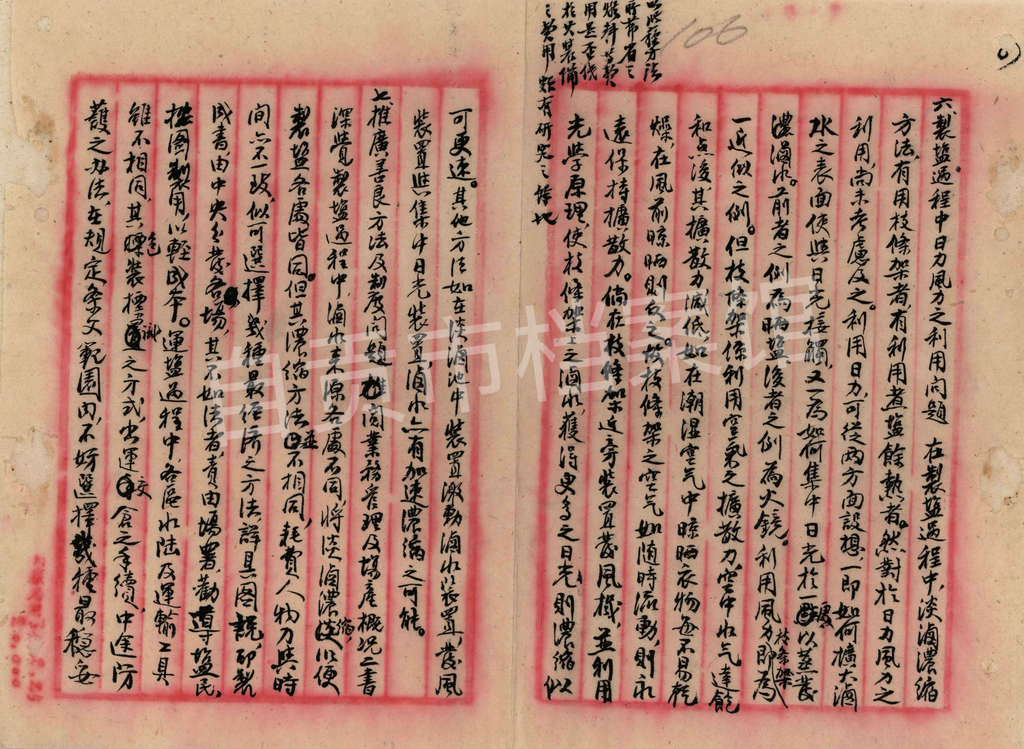 六、製盐過程中日力風力之利用问題　在製盐過程中，淡滷濃縮
方法，有用枝條架者，有利用煮盐餘熱者。然對於日力風力之
利用，尚未考慮及之。利用日力，可從两方面設想，一即如何擴大滷
水之表面使與日光接觸，又一為如何集中日光於一處以蒸發
濃滷水。前者之例為晒盐，後者之例為火鏡。利用風力即為枝條架
一近似之例。但枝條架係利用空氣之擴散力，空中水气達飽
和点後，其擴散力減低，如在潮湿空气中晾晒衣物每不易乾
燥，在風前晾晒則反之。故枝條架之空气如随時流動，則永
遠保持擴散力。倘在枝條架近旁装置發風機，並利用
光学原理，使枝條架上之滷水，獲得更多之日光，則濃縮似
以此種方法
所節省之
燃料等款
用是否低
於火装備
之費用，頗有研究之餘地
可更速。其他方法如在淡滷池中装置激動滷水装置，發風
装置與集中日光装置，滷水亦有加速濃縮之可能。
七、推廣善良方法及制度问題　推閱業務管理及場產概况二書
深覺製盐過程中，滷水来源各處不同，将淡滷濃縮以便
製盐各處皆同。但其濃縮方法並不相同，耗費人物力與時
间亦不一致，似可選擇幾種最经济之方法，詳具图説，印製
成書由中央分發各場，其不如法者，責由場署勸導盐民，
按图製用，以輕成本。運盐過程中各區水陸及運輸工具
雖不相同，其包装標識之方式，出運交倉之手續，中途防
護之办法，在規定条文範圍内，不妨選擇幾種最穩妥
106
自贡市档案馆